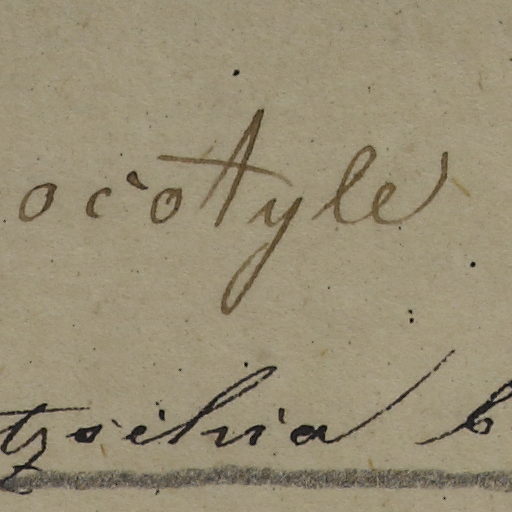 ocotyle
tzschia b